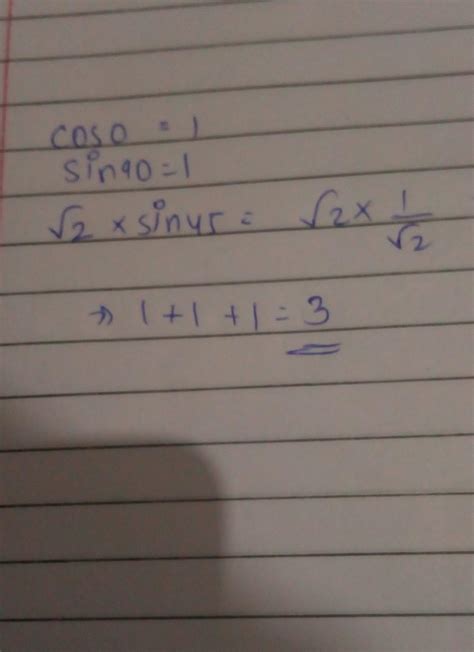 cos0 = 1
sin90=1
√2 × sin45 = √2 × 1/√2
→ 1+1+1=3